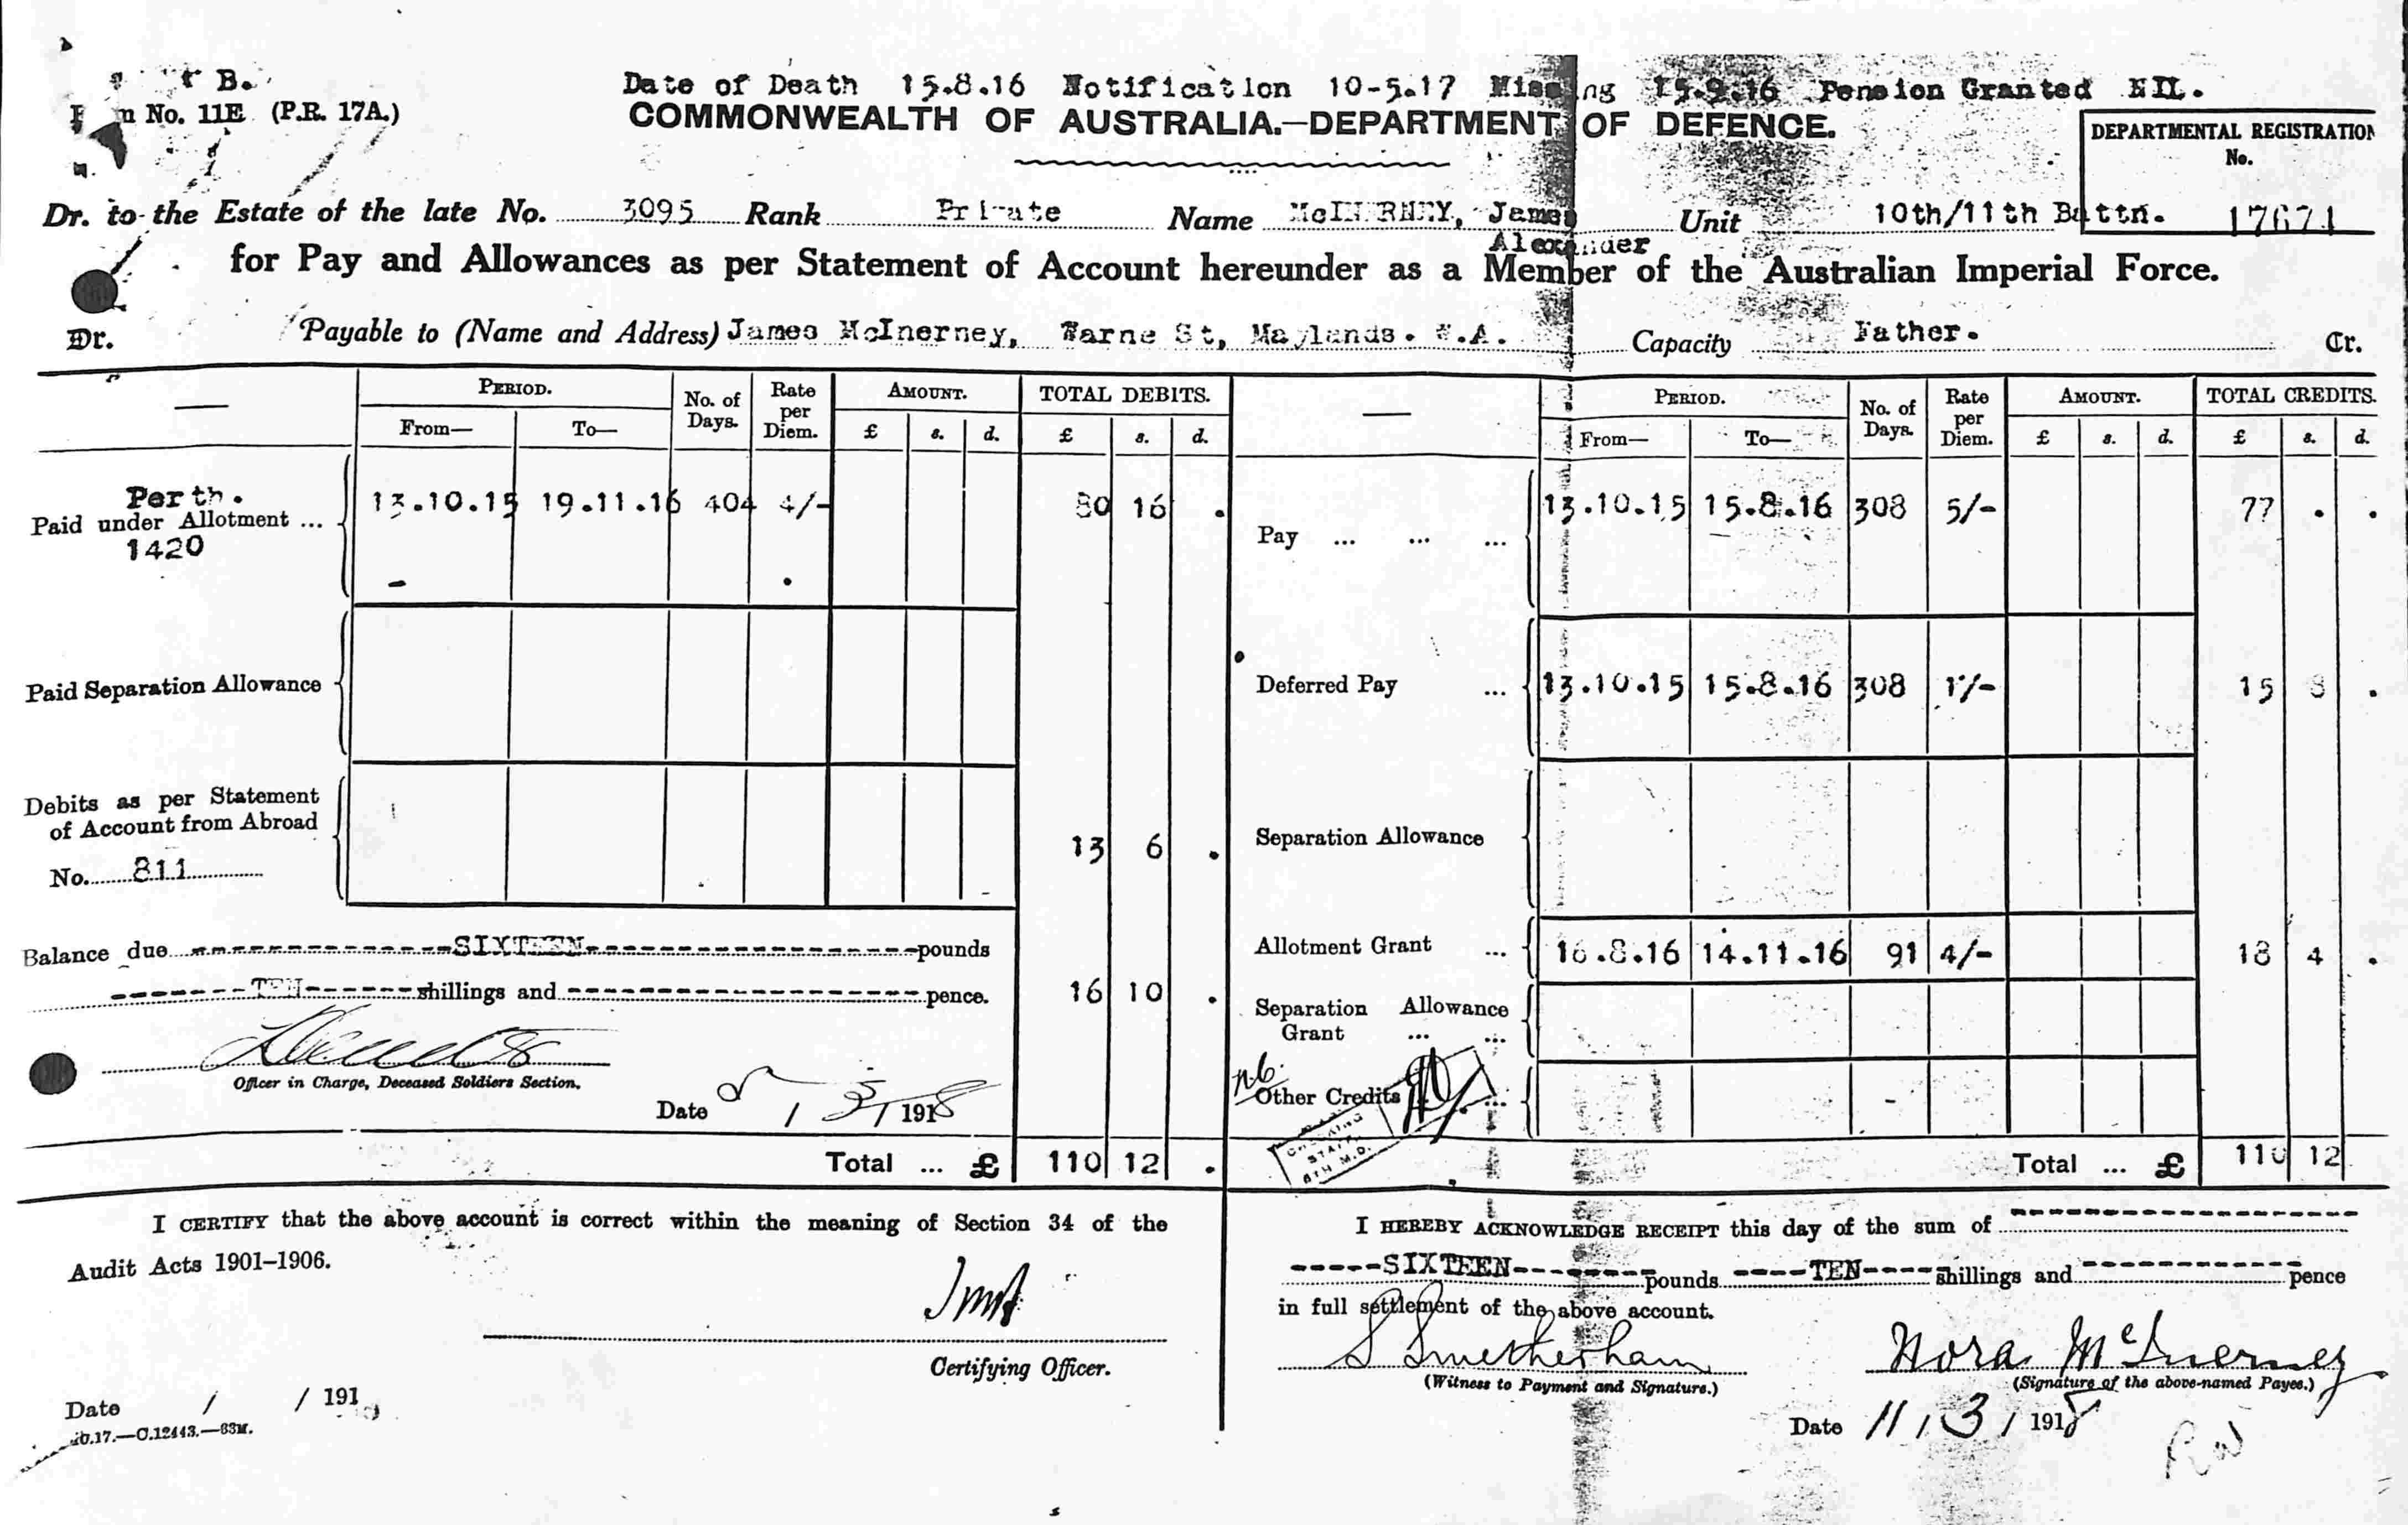 B.
Date of Death 15.8.16 Notification 10-5.17 Missing 15.9.16 Pension Granted NIL.
No. 11E (P.R. 17A.)
COMMONWEALTH OF AUSTRALIA.—DEPARTMENT OF DEFENCE.
DEPARTMENTAL REGISTRATION
No.
17671
Dr. to the Estate of the late No. 3095 Rank Private Name McINERNEY, James Unit 10th/11th Battn.
Alexander
for Pay and Allowances as per Statement of Account hereunder as a Member of the Australian Imperial Force.
Dr. Payable to (Name and Address) James McInerney, Warne St, Maylands. W.A. Capacity Father. Cr.
— PERIOD. No. of Days. Rate per Diem. AMOUNT. TOTAL DEBITS. — PERIOD. No. of Days. Rate per Diem. AMOUNT. TOTAL CREDITS.
From— To— £ s. d. £ s. d. From— To— £ s. d. £ s. d.
Perth.
Paid under Allotment ... 13.10.15 19.11.16 404 4/- 80 16 .
1420
Pay ... ... ... 13.10.15 15.8.16 308 5/- 77 . .
Paid Separation Allowance
Deferred Pay ... 13.10.15 15.8.16 308 1/- 15 8 .
Debits as per Statement
of Account from Abroad
No. 811 13 6 .
Separation Allowance
Balance due SIXTEEN pounds
TEN shillings and pence. 16 10 .
Allotment Grant ... 16.8.16 14.11.16 91 4/- 18 4 .
Separation Allowance
Grant ... ...
Officer in Charge, Deceased Soldiers Section.
Date / 3 / 1918
Other Credits ...
CHECKING
STAFF
5TH M.D.
Total ... £ 110 12 .
Total ... £ 110 12
I CERTIFY that the above account is correct within the meaning of Section 34 of the
Audit Acts 1901–1906.
Certifying Officer.
Date / / 191
C.12443.—83M.
I HEREBY ACKNOWLEDGE RECEIPT this day of the sum of
SIXTEEN pounds TEN shillings and pence
in full settlement of the above account.
S Smetherham
Nora McInerney
(Witness to Payment and Signature.)
(Signature of the above-named Payee.)
Date 11 / 3 / 1918
RW